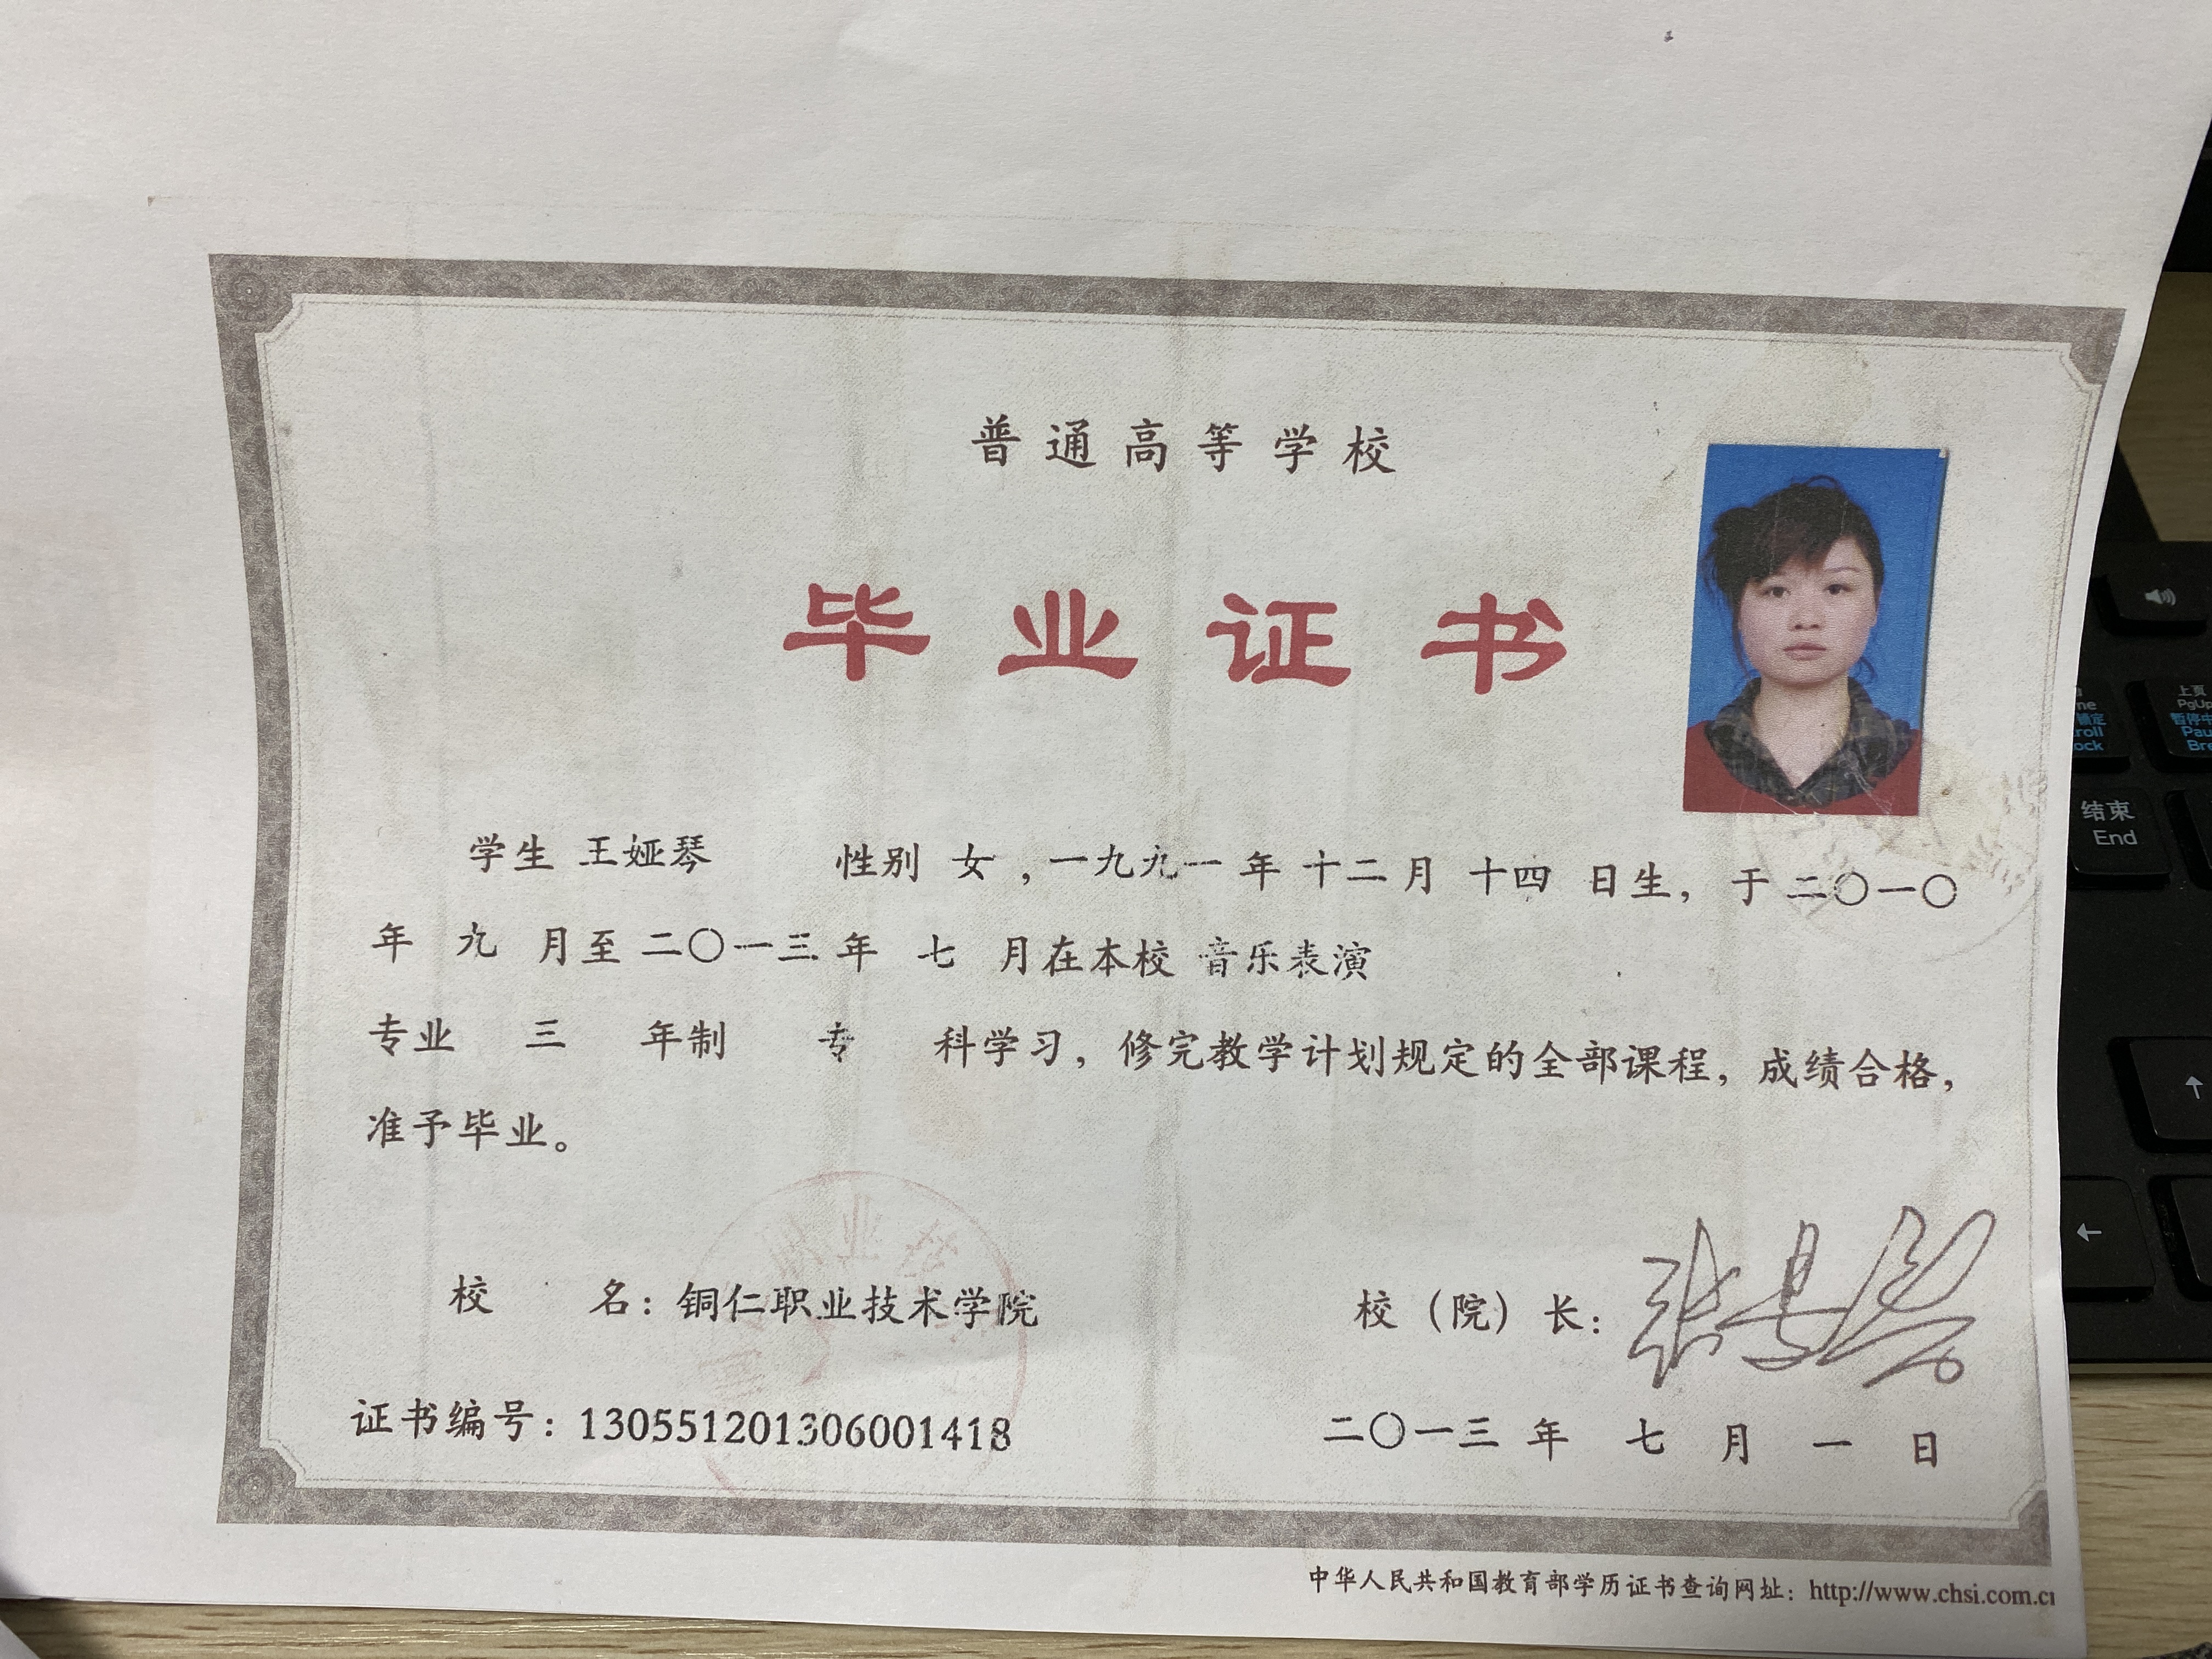 普通高等学校
毕业证书
学生 王娅琴 性别 女，一九九一年 十二月 十四 日生，于二〇一〇
年 九 月至二〇一三年 七 月在本校 音乐表演
专业 三 年制 专 科学习，修完教学计划规定的全部课程，成绩合格，
准予毕业。
校 名：铜仁职业技术学院
校（院）长：
证书编号：130551201306001418
二〇一三年 七 月 一 日
中华人民共和国教育部学历证书查询网址：http://www.chsi.com.cn
上頁
PgUp
结束
End
↑
←